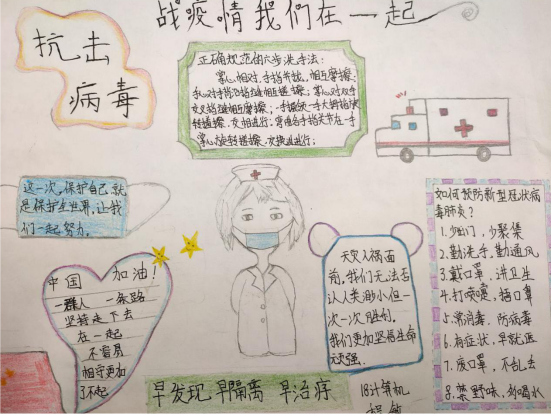 战疫情我们在一起
抗击
病毒
正确规范的六步洗手法:
掌心相对,手指并拢,相互摩擦;
手心对手背沿指缝相互搓擦;掌心对双手
交叉指缝相互摩擦;一手握另一手大拇指旋
转搓擦,交相进行;弯曲各手指关节在一手
掌心旋转搓擦,交换进行;
这一次,保护自己就
是保护全世界,让我
们一起努力。
中国 加油!
一群人 一条路
坚持走下去
在一起
不容易
相守更加
了不起
天灾人祸面
前,我们无法否
认人类渺小,但一
次一次胜利,
我们更加坚信生命
顽强.
如何预防新型冠状病
毒肺炎?
1.少出门,少聚集
2.勤洗手,勤通风
3.戴口罩,讲卫生
4.打喷嚏,捂口鼻
5.常消毒,防病毒
6.有症状,早就医
7.废口罩,不乱丢
8.禁野味,多喝水
早发现 早隔离 早治疗
18计算机